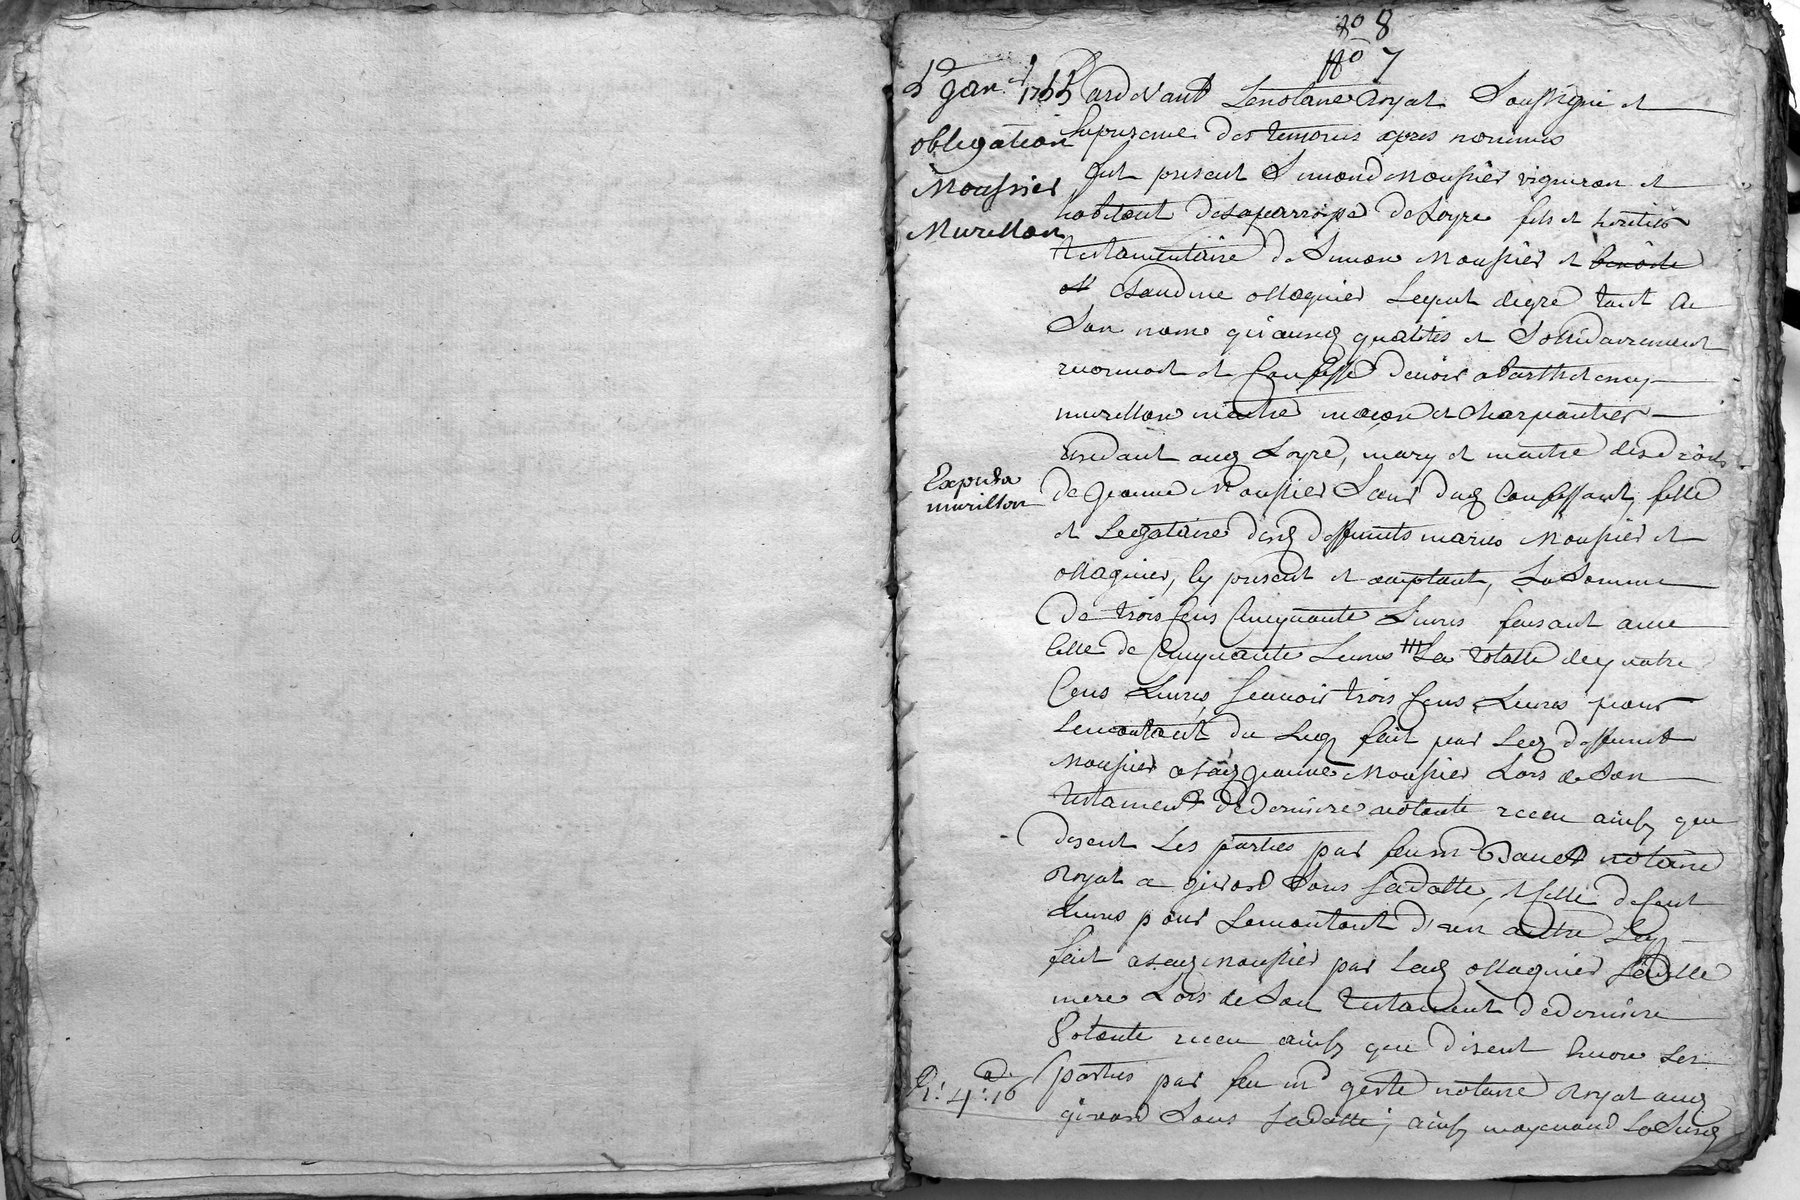 8
No 7
5e Janer 1755
obligation
Moussier
Murillon
Expedié a
murillon
R: 4: 16
Pardevant Lenotaire Royal Soussigné et
En presence des temoins apres nommés
fut present Simond Moussier vigneron et
habitant de Laparroisse de Loyre fils et heritier
testamentaire de Simon Moussier et benoite
et Claudine ollagnier Lequel de gre tant a
Son nom qu'ausd qualités et Sollidairement
reconnoit et Confesse devoir a Barthelemy
murillon maitre maçon et Charpantier
residant aud Loyre, mary et maitre des droits
de Jeanne Moussier Soeur dud Confessant, fille
et Legataire desd deffunts mariés Moussier et
ollagnier, Cy present et aceptant, La Somme
De trois Cens Cinquante Livres faisant avec
Celle de Cinquante Livres La totalle de quatre
Cens Livres, Scavoir trois Cens Livres pour
Lemontant du Leg fait par Led deffunt
Moussier a lad Jeanne Moussier Lors de Son
testament de derniere volonté receu ainsy que
disent Les parties par feu me notaire
Royal a givord Sous Sadatte, et Celle de Cent
Livres pour Lemontant d'un autre Leg
fait a lad moussier par Lad ollagnier Sadette
mere Lors de Son testament de derniere
Volonté receu ainsy que disent Encore Les
parties par feu me geste notaire Royal aud
givord Sous Sadatte; ainsy moyenant La Susd